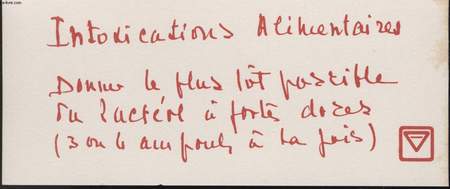 Intoxications Alimentaires
Donner le plus tôt possible
Du Lactéol à fortes doses
(3 ou 4 ampoules à la fois)